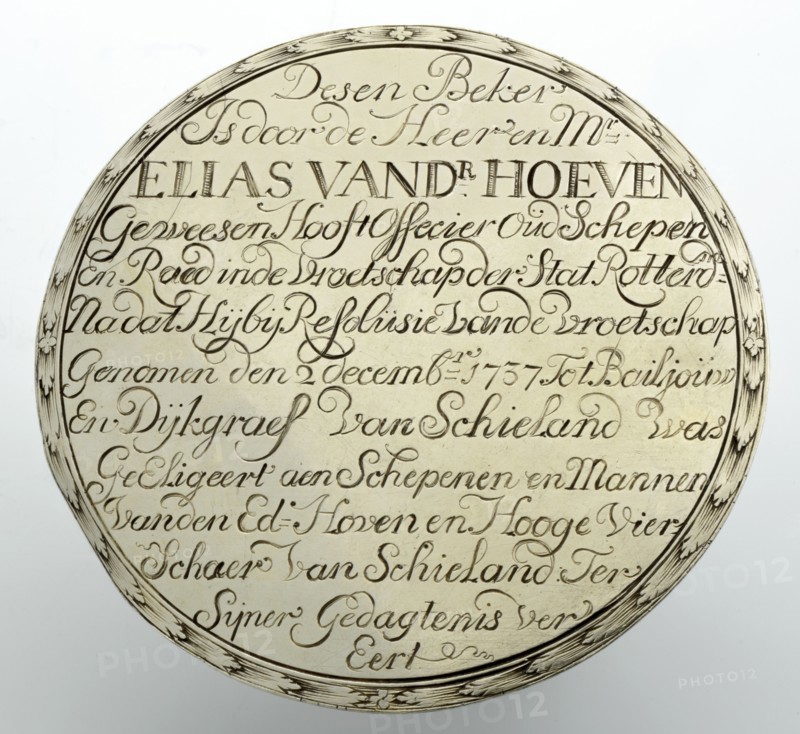 Desen Beker
Is door de Heer en Mr.
ELIAS VAND.R HOEVEN
Geweesen Hooft Offecier Oud Schepen
En Raed inde Vroetschap der Stat Rotterd.m
Nadat Hÿ bÿ Resolüsie Vande Vroetschap
Genomen den 2 decembr.e 1737 Tot Bailjoüw
En Dÿkgraef Van Schieland was
GeEligeert aen Schepenen en Mannen
Vanden Ed.e Hoven en Hooge Vier-
Schaer Van Schieland Ter
Sÿner Gedagtenis Ver
Eert
PHOTO12
PHOTO12
PHOTO12
PHOTO12
PHOTO12